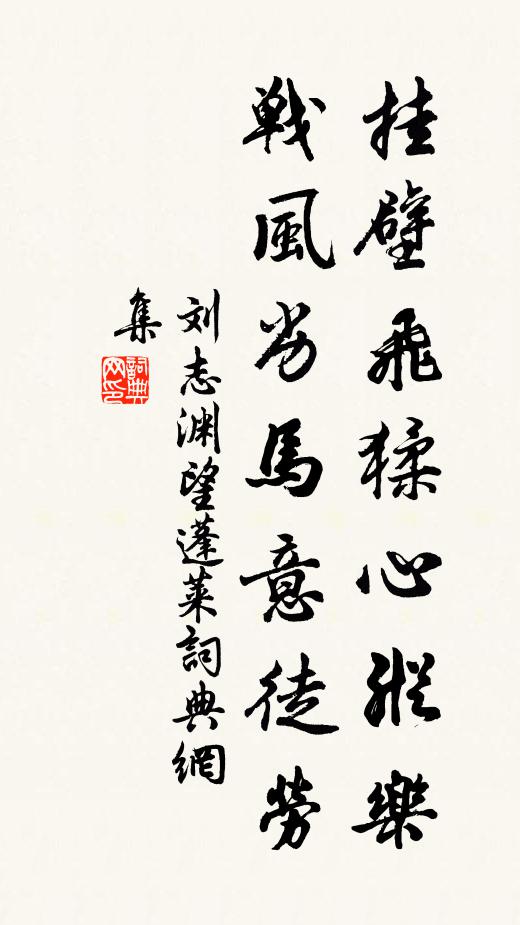 挂壁飛猱心縱樂
戦風劣馬意徒勞
刘志渊望蓬莱詞典網
集
詞典
网印